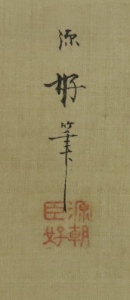 源好筆
源朝
臣好